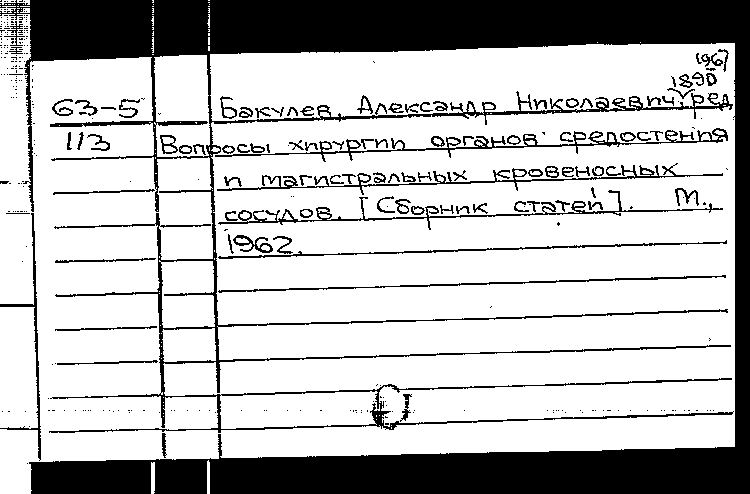 1967
1890
63-5 Бакулев, Александр Николаевич, ред
113 Вопросы хирургии органов средостения
и магистральных кровеносных
сосудов. [Сборник статей]. М.,
1962.